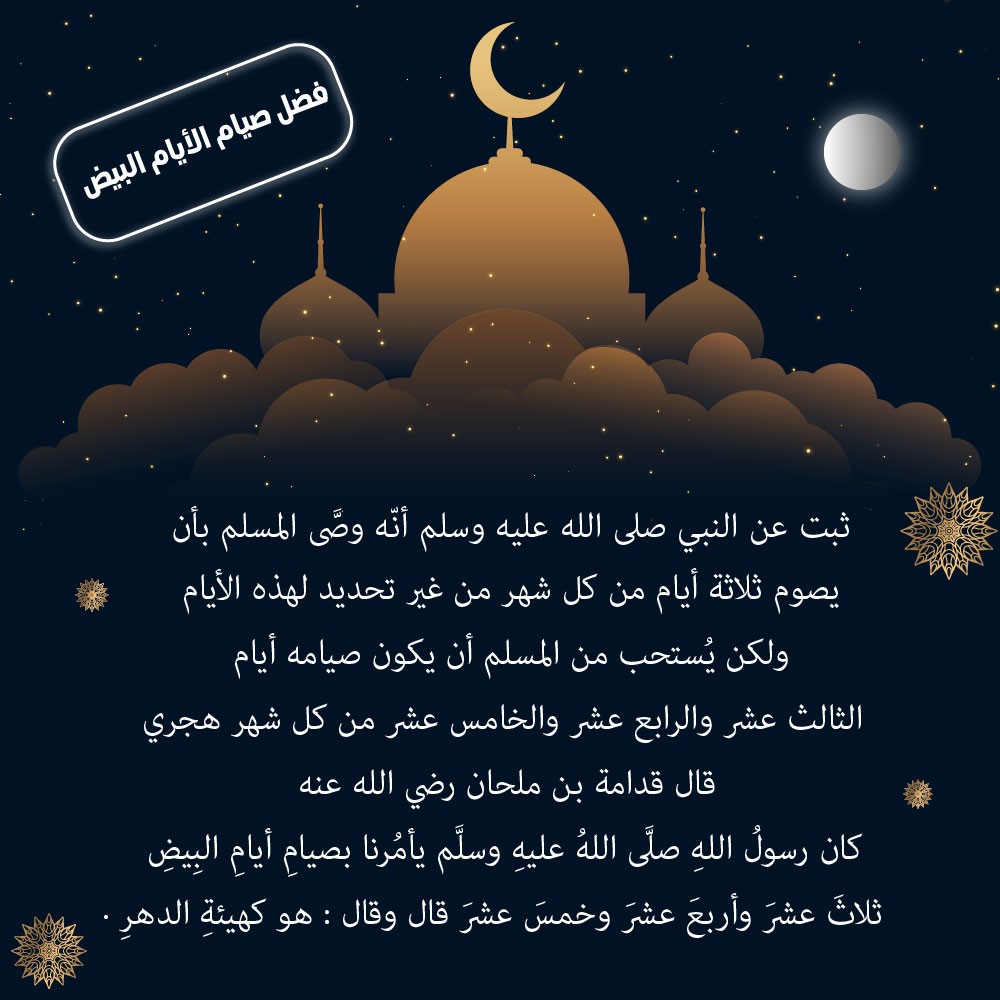 فضل صيام الأيام البيض
ثبت عن النبي صلى الله عليه وسلم أنّه وصَّى المسلم بأن
يصوم ثلاثة أيام من كل شهر من غير تحديد لهذه الأيام
ولكن يُستحب من المسلم أن يكون صيامه أيام
الثالث عشر والرابع عشر والخامس عشر من كل شهر هجري
قال قدامة بن ملحان رضي الله عنه
كان رسولُ اللهِ صلَّى اللهُ عليهِ وسلَّم يأمُرنا بصيامِ أيامِ البِيضِ
ثلاثَ عشرَ وأربعَ عشرَ وخمسَ عشرَ قال وقال : هو كهيئةِ الدهرِ .